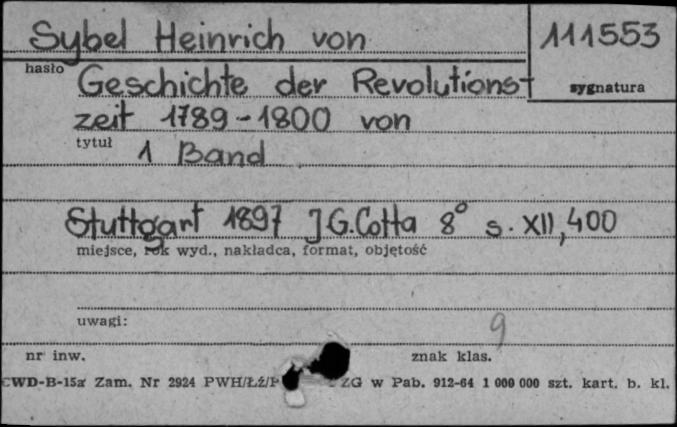 Sybel Heinrich von 111553
hasło
Geschichte der Revolutions- sygnatura
zeit 1789-1800 von
tytuł
1 Band
Stuttgart 1897 J.G.Cotta 8° s. XII,400
miejsce, rok wyd., nakładca, format, objętość
uwagi:
9
nr inw. znak klas.
CWD-B-15a Zam. Nr 2924 PWH/Łź/P ZG w Pab. 912-64 1 000 000 szt. kart. b. kl.